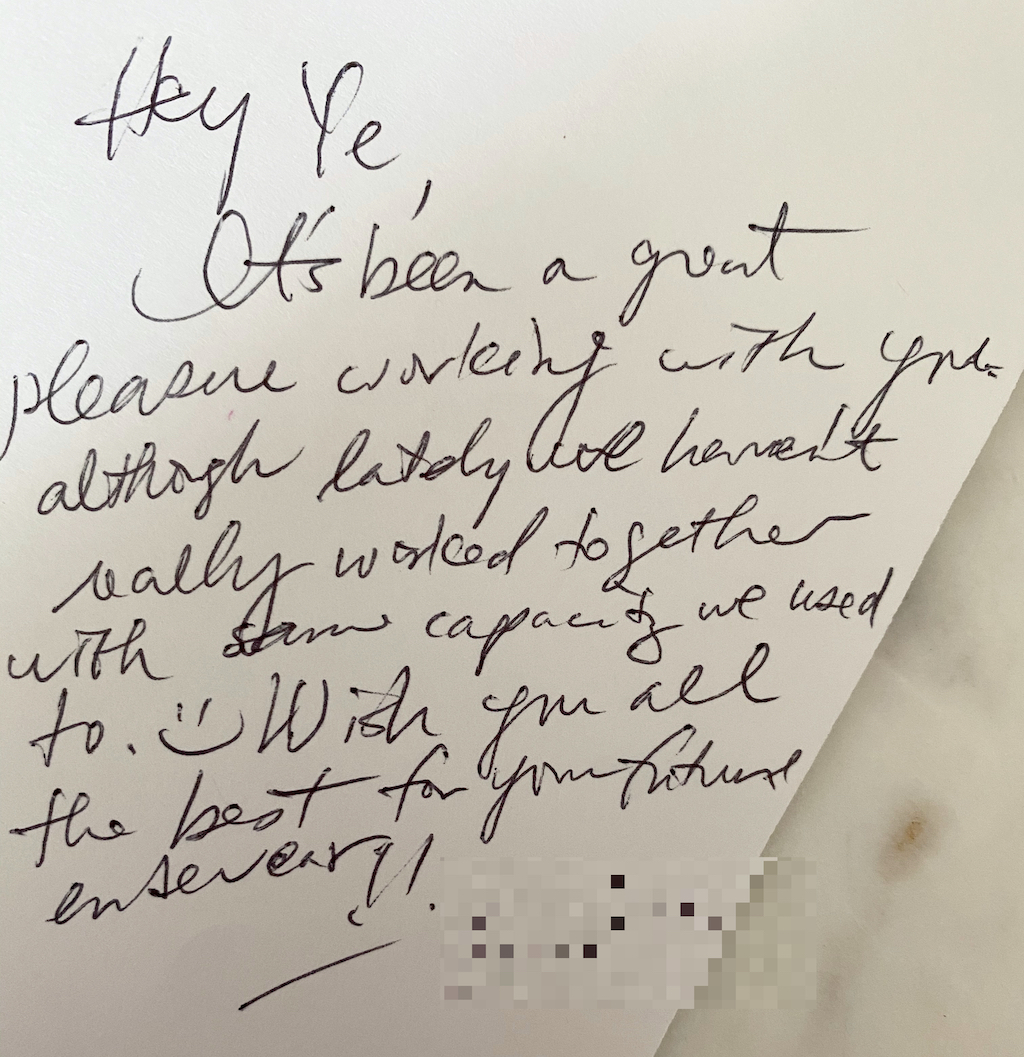 Hey Ye,
It's been a great
pleasure working with you.
although lately we haven't
really worked together
with same capacity we used
to. :) Wish you all
the best for your future